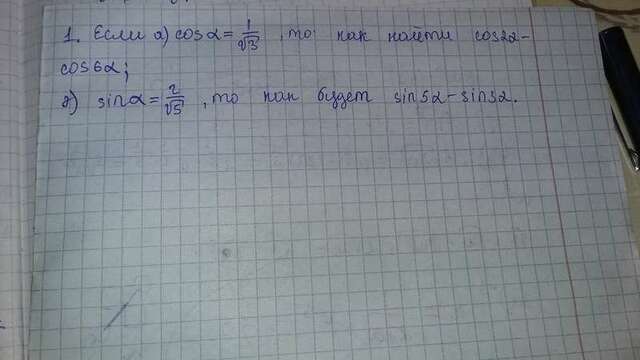 1. Если а) cosα = 1/√3, то как найти cos2α-
cos6α;
б) sinα = 2/√5, то как будет sin5α - sin3α.